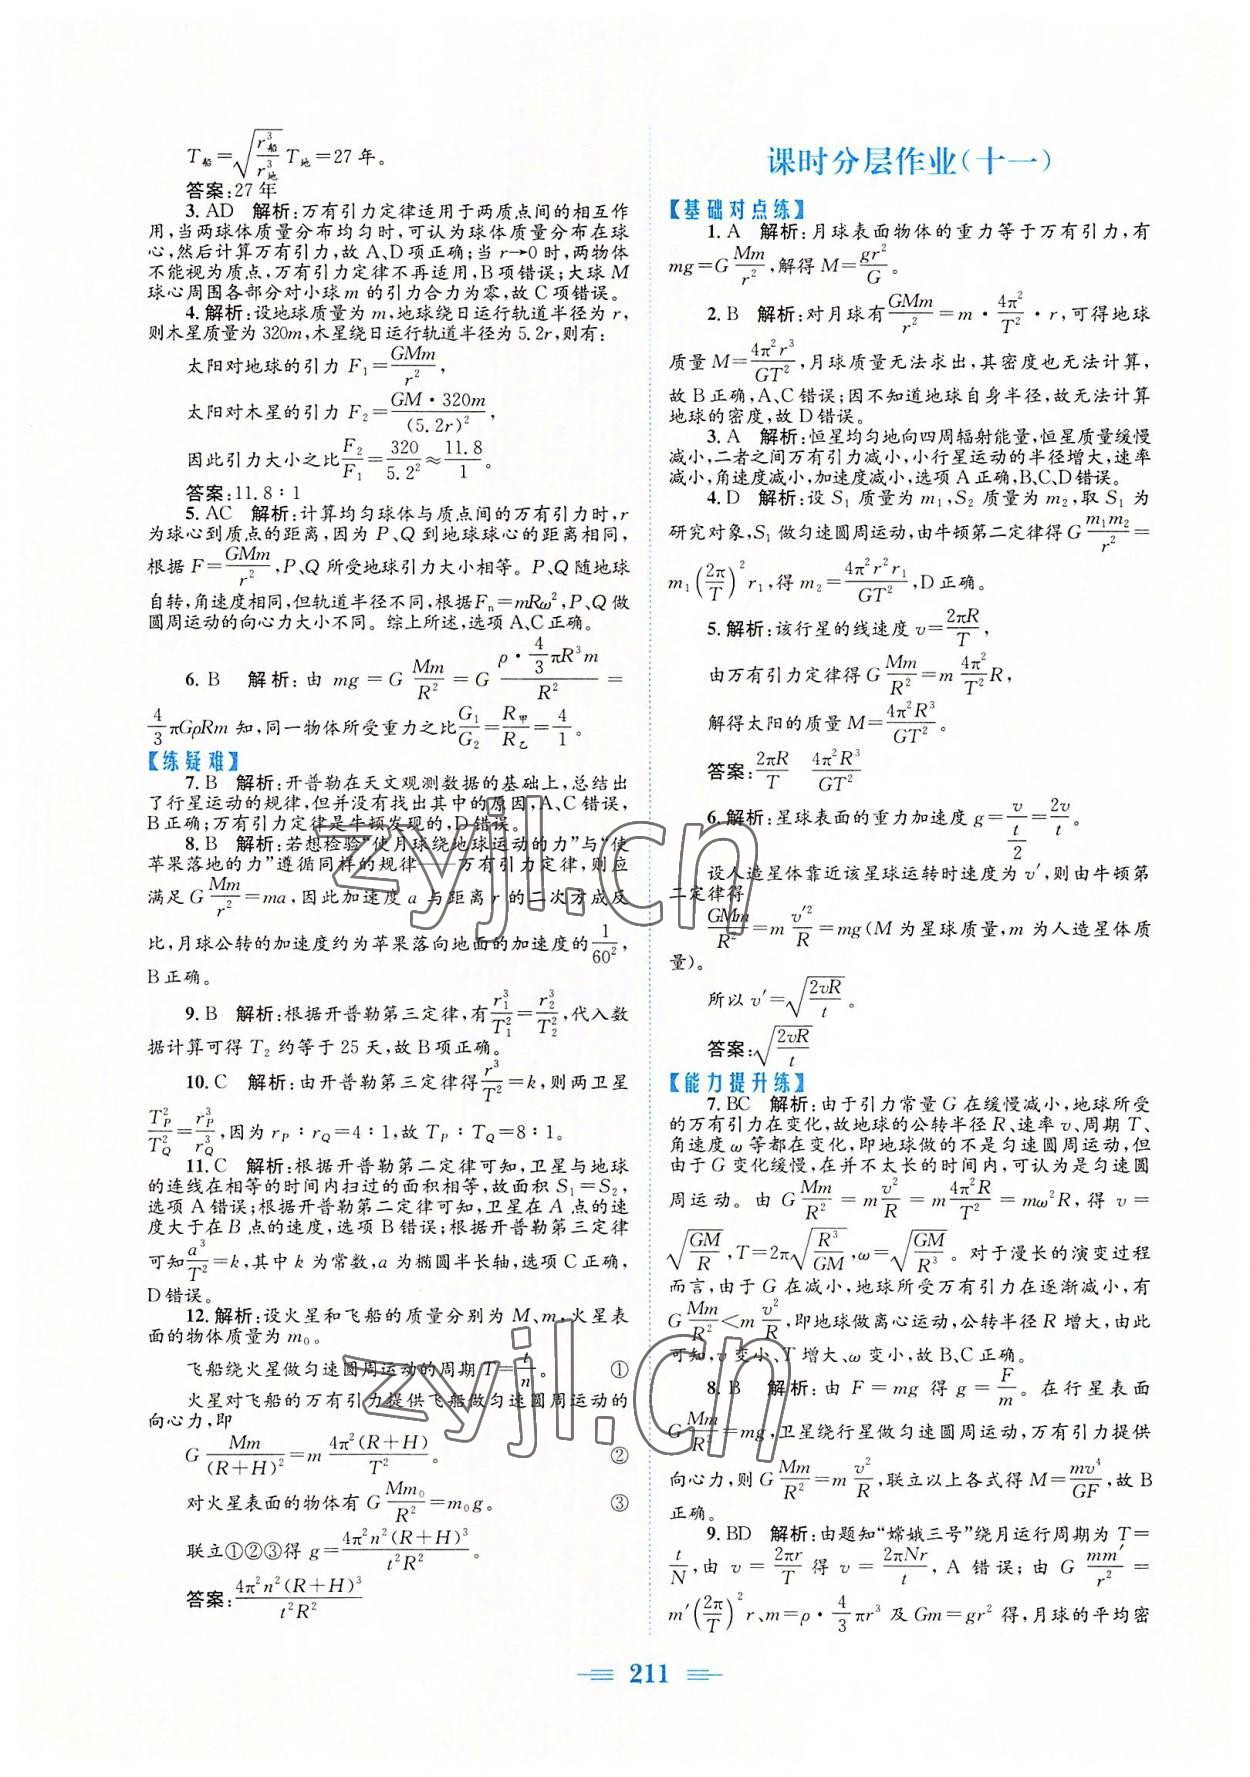 T船＝√(r船³/r地³) T地＝27 年。
答案:27 年
3. AD　解析:万有引力定律适用于两质点间的相互作
用,当两球体质量分布均匀时,可认为球体质量分布在球
心,然后计算万有引力,故 A、D 项正确;当 r→0 时,两物体
不能视为质点,万有引力定律不再适用,B 项错误;大球 M
球心周围各部分对小球 m 的引力合力为零,故 C 项错误。
4. 解析:设地球质量为 m,地球绕日运行轨道半径为 r,
则木星质量为 320m,木星绕日运行轨道半径为 5.2r,则有:
太阳对地球的引力 F₁＝GMm/r²,
太阳对木星的引力 F₂＝GM·320m/(5.2r)²,
因此引力大小之比F₂/F₁＝320/5.2²≈11.8/1。
答案:11.8∶1
5. AC　解析:计算均匀球体与质点间的万有引力时,r
为球心到质点的距离,因为 P、Q 到地球球心的距离相同,
根据 F＝GMm/r²,P、Q 所受地球引力大小相等。P、Q 随地球
自转,角速度相同,但轨道半径不同,根据Fₙ＝mRω²,P、Q 做
圆周运动的向心力大小不同。综上所述,选项 A、C 正确。
6. B　解析:由 mg＝G Mm/R²＝G (ρ·4/3 πR³m)/R²＝
4/3 πGρRm 知,同一物体所受重力之比G₁/G₂＝R甲/R乙＝4/1。
【练疑难】
7. B　解析:开普勒在天文观测数据的基础上,总结出
了行星运动的规律,但并没有找出其中的原因,A、C 错误,
B 正确;万有引力定律是牛顿发现的,D 错误。
8. B　解析:若想检验“使月球绕地球运动的力”与“使
苹果落地的力”遵循同样的规律——万有引力定律,则应
满足 G Mm/r²＝ma,因此加速度 a 与距离 r 的二次方成反
比,月球公转的加速度约为苹果落向地面的加速度的1/60²,
B 正确。
9. B　解析:根据开普勒第三定律,有r₁³/T₁²＝r₂³/T₂²,代入数
据计算可得 T₂ 约等于 25 天,故 B 项正确。
10. C　解析:由开普勒第三定律得r³/T²＝k,则两卫星
T_P²/T_Q²＝r_P³/r_Q³,因为 r_P∶r_Q＝4∶1,故 T_P∶T_Q＝8∶1。
11. C　解析:根据开普勒第二定律可知,卫星与地球
的连线在相等的时间内扫过的面积相等,故面积 S₁＝S₂,
选项 A 错误;根据开普勒第二定律可知,卫星在 A 点的速
度大于在 B 点的速度,选项 B 错误;根据开普勒第三定律
可知a³/T²＝k,其中 k 为常数,a 为椭圆半长轴,选项 C 正确、
D 错误。
12. 解析:设火星和飞船的质量分别为 M、m,火星表
面的物体质量为 m₀。
飞船绕火星做匀速圆周运动的周期 T＝t/n。　①
火星对飞船的万有引力提供飞船做匀速圆周运动的
向心力,即
G Mm/(R＋H)²＝m 4π²(R＋H)/T²。　②
对火星表面的物体有 G Mm₀/R²＝m₀g。　③
联立①②③得 g＝4π²n²(R＋H)³/t²R²。
答案:4π²n²(R＋H)³/t²R²
课时分层作业(十一)
【基础对点练】
1. A　解析:月球表面物体的重力等于万有引力,有
mg＝G Mm/r²,解得 M＝gr²/G。
2. B　解析:对月球有GMm/r²＝m·4π²/T²·r,可得地球
质量 M＝4π²r³/GT²,月球质量无法求出,其密度也无法计算,
故 B 正确,A、C 错误;因不知道地球自身半径,故无法计算
地球的密度,故 D 错误。
3. A　解析:恒星均匀地向四周辐射能量,恒星质量缓慢
减小,二者之间万有引力减小,小行星运动的半径增大,速率
减小,角速度减小,加速度减小,选项 A 正确,B、C、D 错误。
4. D　解析:设 S₁ 质量为 m₁,S₂ 质量为 m₂,取 S₁ 为
研究对象,S₁ 做匀速圆周运动,由牛顿第二定律得 G m₁m₂/r²＝
m₁(2π/T)² r₁,得 m₂＝4π²r²r₁/GT²,D 正确。
5. 解析:该行星的线速度 v＝2πR/T,
由万有引力定律得 G Mm/R²＝m 4π²/T² R,
解得太阳的质量 M＝4π²R³/GT²。
答案:2πR/T　4π²R³/GT²
6. 解析:星球表面的重力加速度 g＝v/(t/2)＝2v/t。
设人造星体靠近该星球运转时速度为 v′,则由牛顿第
二定律得
GMm/R²＝m v′²/R＝mg(M 为星球质量,m 为人造星体质
量)。
所以 v′＝√(2vR/t)。
答案:√(2vR/t)
【能力提升练】
7. BC　解析:由于引力常量 G 在缓慢减小,地球所受
的万有引力在变化,故地球的公转半径 R、速率 v、周期 T、
角速度 ω 等都在变化,即地球做的不是匀速圆周运动,但
由于 G 变化缓慢,在并不太长的时间内,可认为是匀速圆
周运动。由 G Mm/R²＝m v²/R＝m 4π²R/T²＝mω²R,得 v＝
√(GM/R),T＝2π√(R³/GM),ω＝√(GM/R³)。对于漫长的演变过程
而言,由于 G 在减小,地球所受万有引力在逐渐减小,有
G Mm/R²＜m v²/R,即地球做离心运动,公转半径 R 增大,由此
可知,v 变小、T 增大、ω 变小,故 B、C 正确。
8. B　解析:由 F＝mg 得 g＝F/m。在行星表面
G Mm/R²＝mg,卫星绕行星做匀速圆周运动,万有引力提供
向心力,则 G Mm/R²＝m v²/R,联立以上各式得 M＝mv⁴/GF,故 B
正确。
9. BD　解析:由题知“嫦娥三号”绕月运行周期为 T＝
t/N,由 v＝2πr/T 得 v＝2πNr/t,A 错误;由 G mm′/r²＝
m′(2π/T)² r、m＝ρ·4/3 πr³ 及 Gm＝gr² 得,月球的平均密
211
zyjl.cn
zyjl.cn